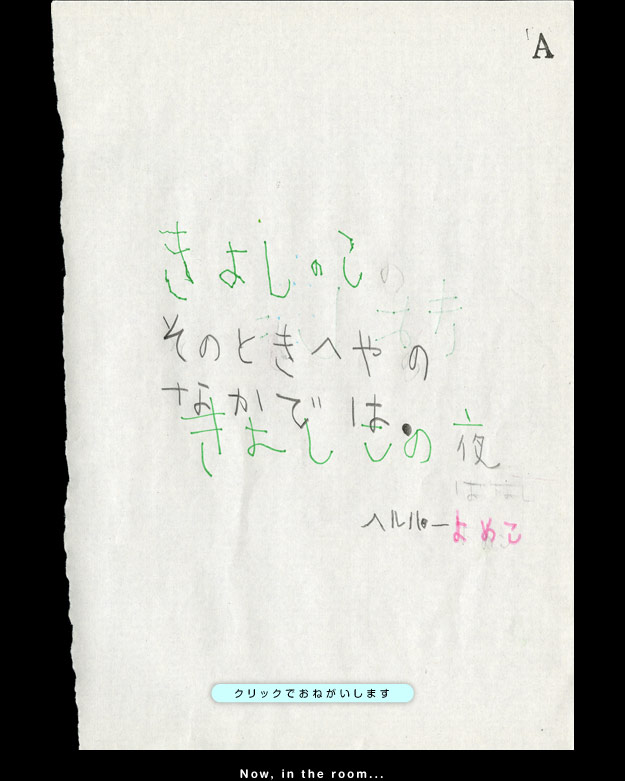 A
きよしのし
そのときへやの
なかでは
きよししの夜
ヘルパーよめこ
クリックでおねがいします
Now, in the room...